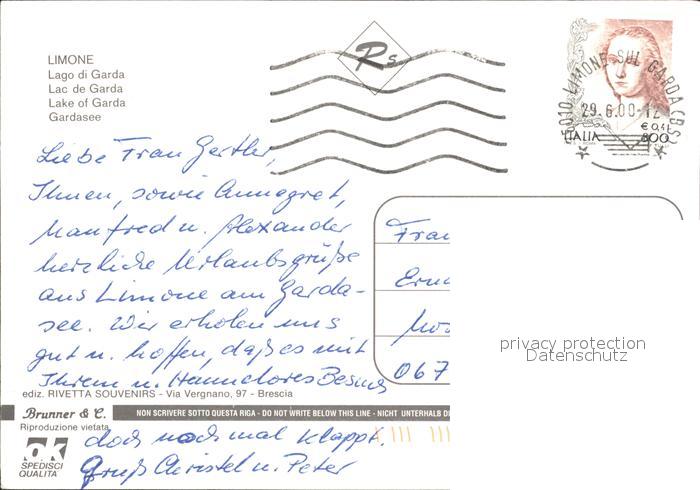 LIMONE
Lago di Garda
Lac de Garda
Lake of Garda
Gardasee
Rs
LIMONE SUL GARDA (BS)
29.6.00-12
ITALIA
€ 0,41
800
Liebe Frau Gertler,
Ihnen, sowie Annegret,
Manfred u. Alexander
herzliche Urlaubsgrüße
aus Limone am Garda-
see. Wir erholen uns
gut u. hoffen, daß es mit
Ihrem u. Hannelores Besuch
doch noch mal klappt.
Gruß Christel u. Peter
Frau
067
privacy protection
Datenschutz
ediz. RIVETTA SOUVENIRS - Via Vergnano, 97 - Brescia
Brunner & C.
NON SCRIVERE SOTTO QUESTA RIGA - DO NOT WRITE BELOW THIS LINE - NICHT UNTERHALB DI
Riproduzione vietata
ak
SPEDISCI
QUALITA'